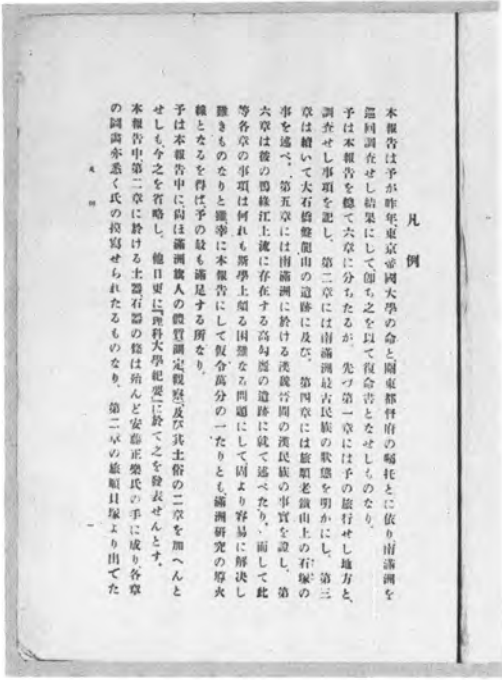 凡例
本報告は予が昨年東京帝國大學の命と關東都督府の囑托とに依り南滿洲を
巡回調査せし結果にして、卽ち之を以て復命書となせしものなり。
予は本報告を總て六章に分ちたるが、先づ第一章には予の旅行せし地方と、
調査せし事項を記し、第二章には南滿洲最古民族の狀態を明かにし、第三
章は續いて大石橋盤龍山の遺跡に及び、第四章には旅順老鐵山上の石塚の
事を述べ、第五章には南滿洲に於ける漢魏晉間の漢民族の事實を證し、第
六章は彼の鴨綠江上流に存在する高勾麗の遺跡に就て述べたり、而して此
等各章の事項は何れも斯學上頗る困難なる問題にして固より容易に解決し
難きものなりと雖、幸に本報告にして假令萬分の一たりとも、滿洲研究の導火
線となるを得ば、予の最も滿足する所なり。
予は本報告中に、尙ほ滿洲旗人の體質測定、觀察、及び其土俗の二章を加へんと
せしも、今之を省略し、他日更に『理科大學紀要』に於て之を發表せんとす。
本報告中、第二章に於ける土器、石器の條は殆んど安藤正樂氏の手に成り、各章
の圖畵亦悉く氏の摸寫せられたるものなり。第二章の旅順貝塚より出てた
凡例
一